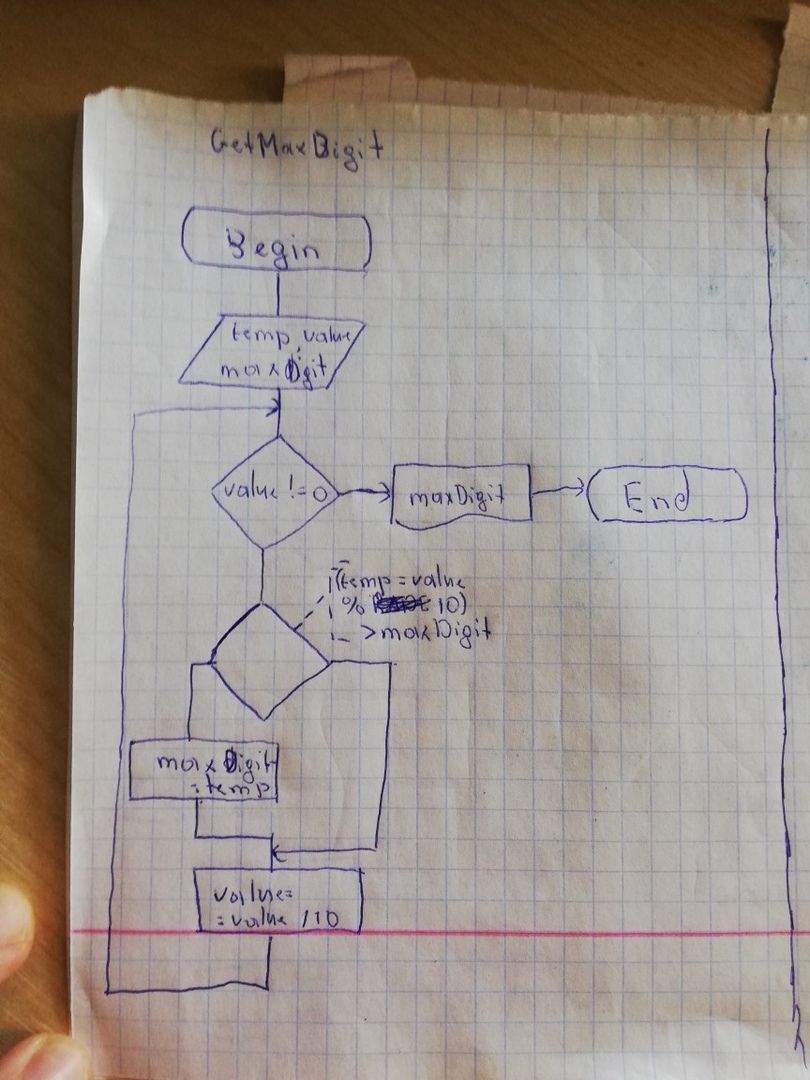 GetMaxDigit
Begin
temp, value
maxDigit
value != 0
maxDigit
End
((temp = value
% 10)
> maxDigit
maxDigit
= temp
value =
= value / 10